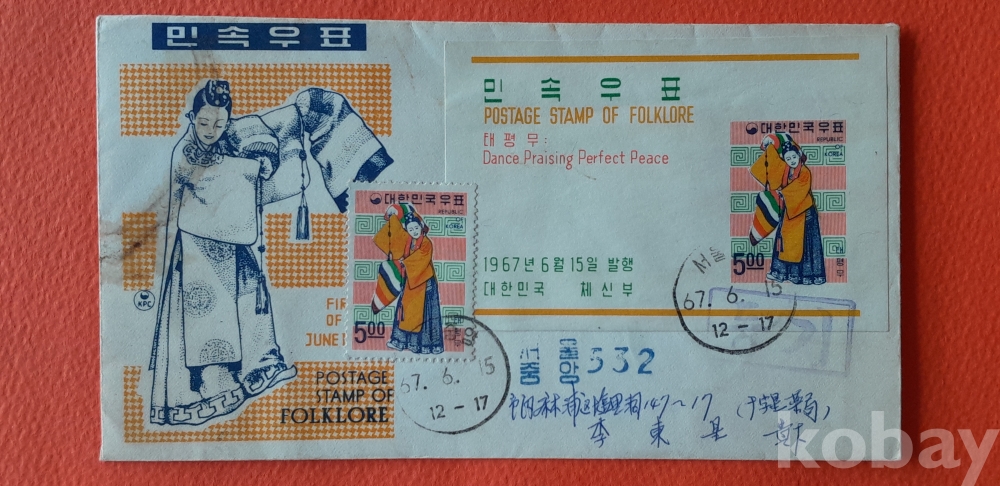 민속우표
민속우표
POSTAGE STAMP OF FOLKLORE
태평무:
Dance Praising Perfect Peace
1967년 6월 15일 발행
대한민국 체신부
대한민국우표
REPUBLIC
KOREA
태평무
5.00
서울
67. 6. 15
12 - 17
대한민국우표
REPUBLIC
KOREA
5.00
KPC
FIR
OF
JUNE 1
POSTAGE
STAMP OF
FOLKLORE
67. 6. 15
12 - 17
서울
중앙 532
147~17
李東是
kobay